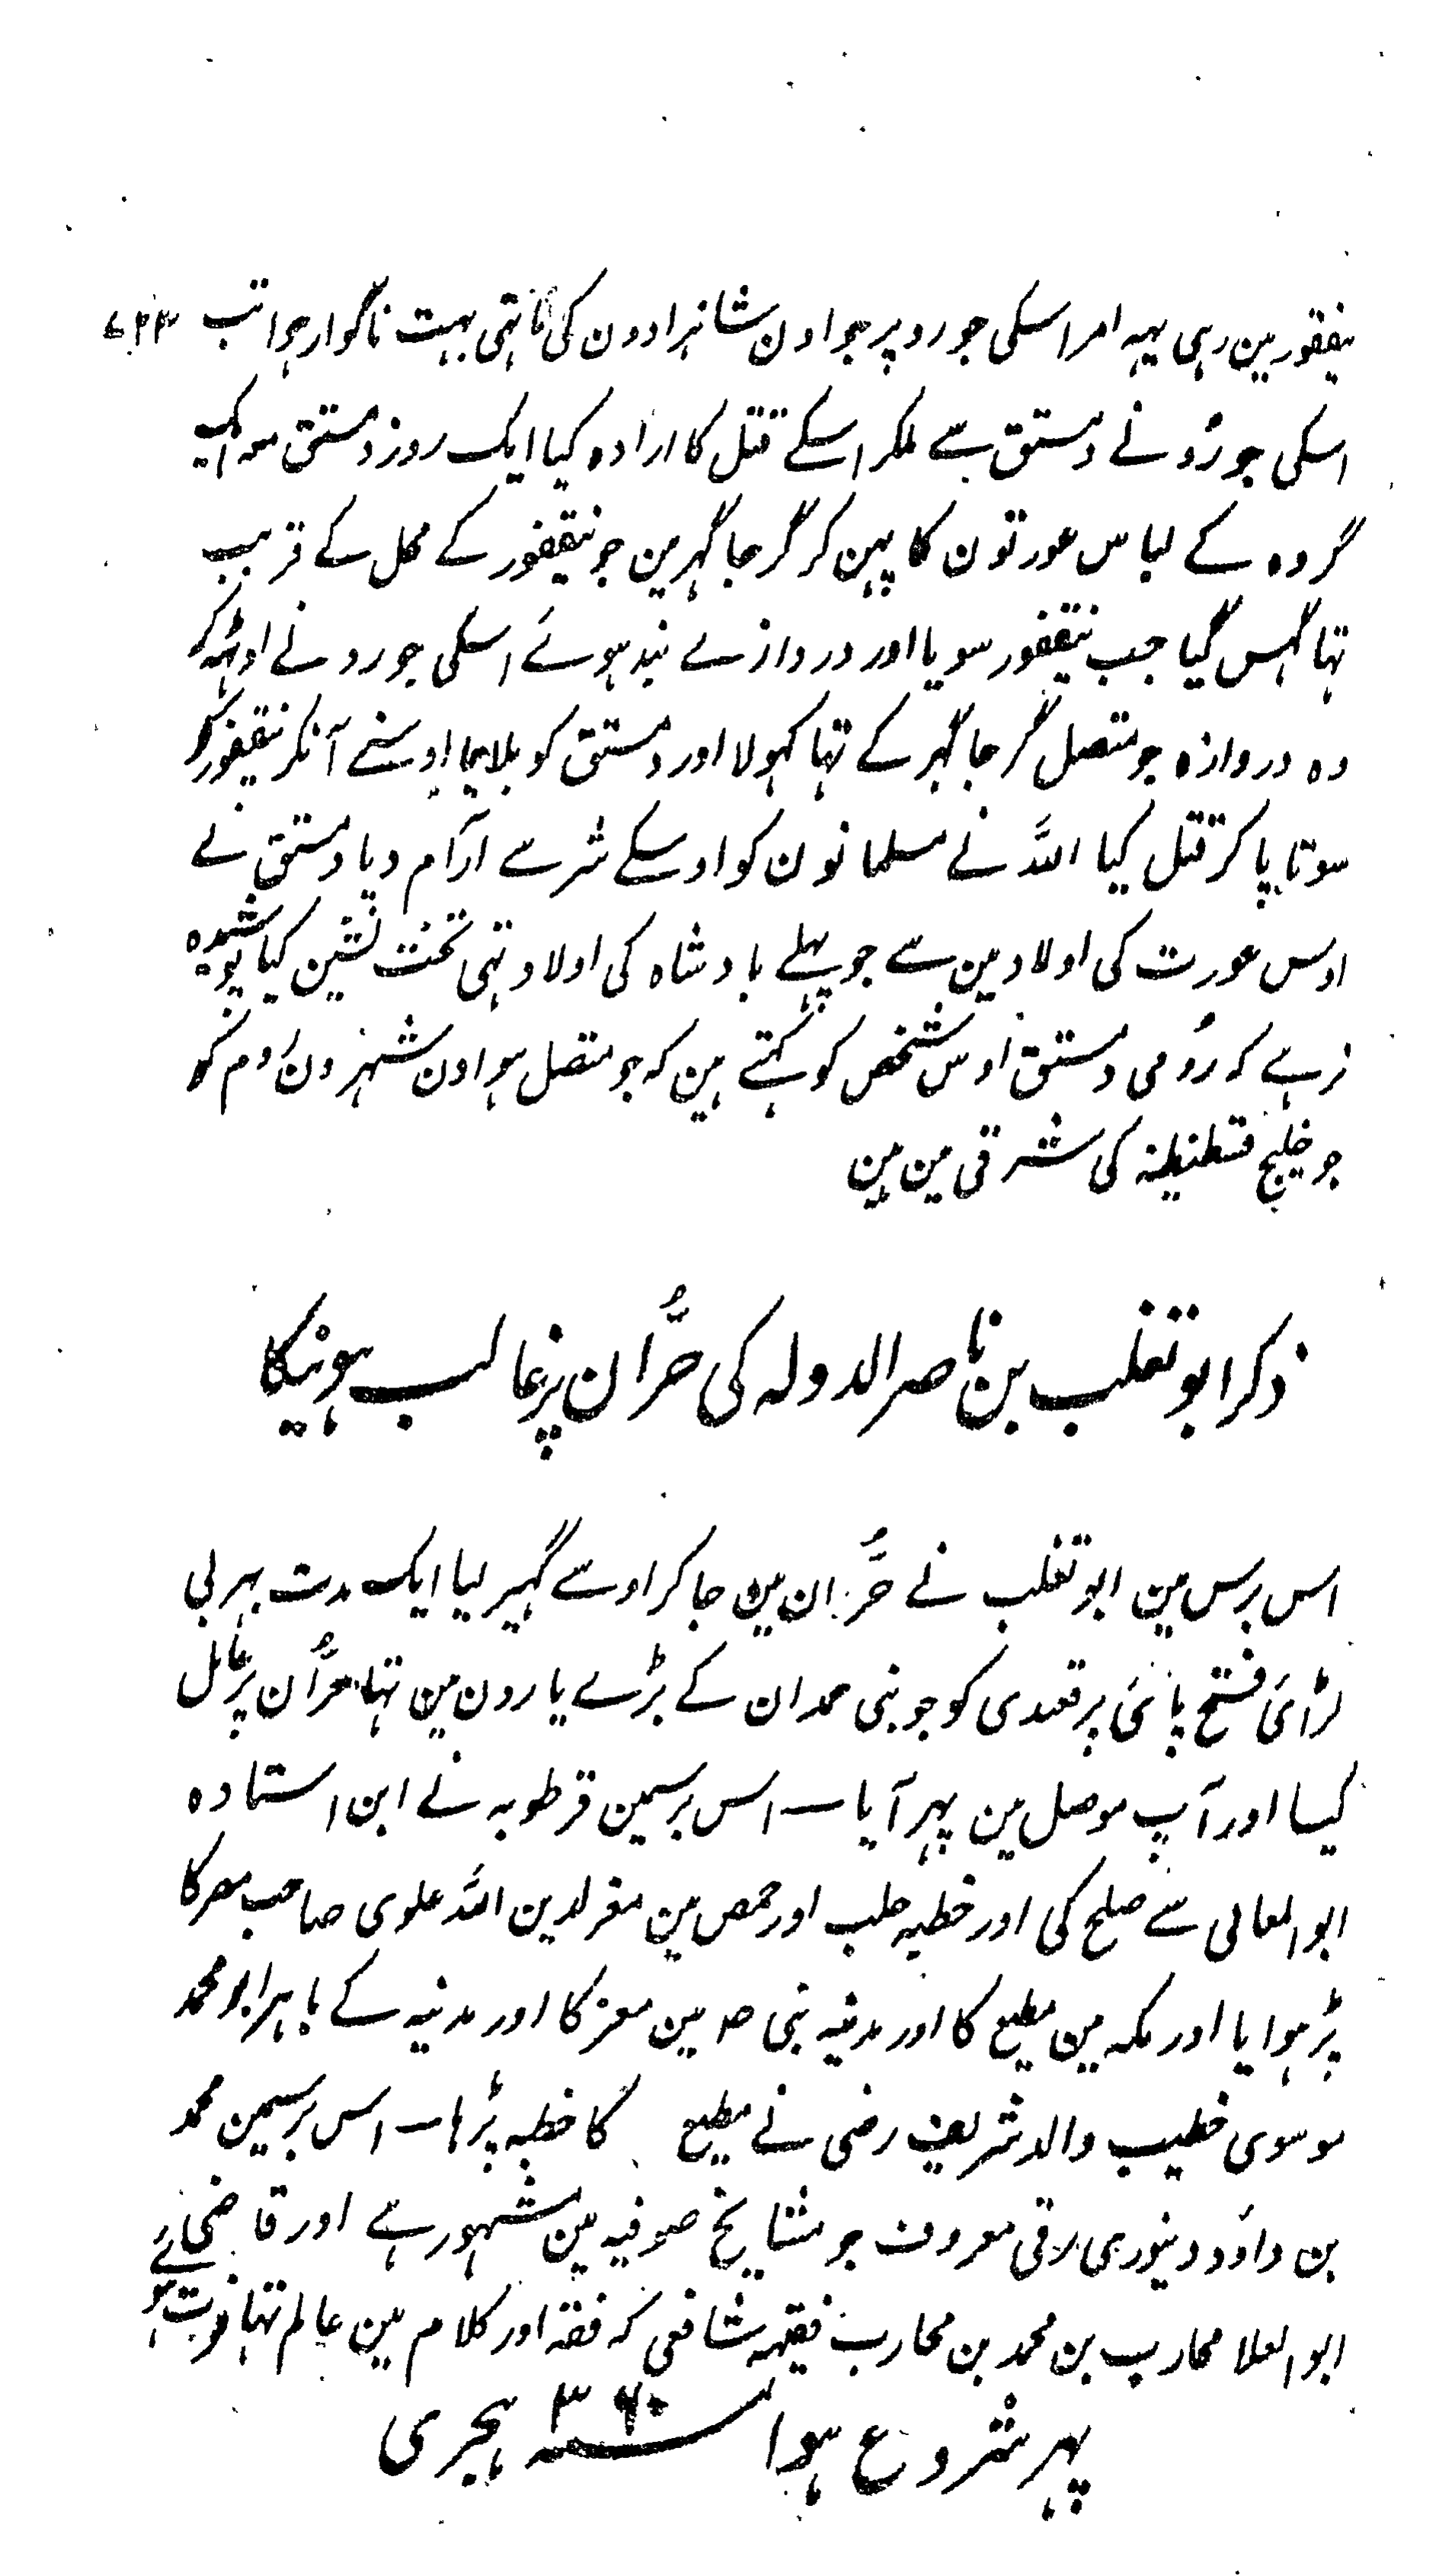 نیقفور مین رہی یہہ امر اسکی جورو پر جو اون شاہزادون کی ما تہی بہت ناگوار ہوا تب
اسکی جورُو نے دمستق سے ملکر اسکے قتل کا ارادہ کیا ایک روز دمستق معہ ایک
گروہ کے لباس عورتون کا پہن کر گرجا گہر مین جو نیقفور کے محل کے قریب
تہا گہس گیا جب نیقفور سویا اور دروازے بند ہوئے اسکی جورو نے اوٹہہ کر
وہ دروازہ جو متصل گرجا گہر کے تہا کہولا اور دمستق کو بلا لیا اوسنے آنکر نیقفور کو
سوتا پا کر قتل کیا اللہ نے مسلمانون کو اوسکے شر سے آرام دیا دمستق نے
اوس عورت کی اولاد مین سے جو پہلے بادشاہ کی اولاد تہی تخت نشین کیا پوشیدہ
نرہے کہ رُومی دمستق اوس شخص کو کہتے ہین کہ جو متصل ہو اون شہرون رُوم کو
جو خلیج قسطنطنیہ کی شرقی مین ہین
ذکر ابو تغلب بن ناصر الدولہ کی حرَّان پر غالب ہونیکا
اس برس مین ابو تغلب نے حرَّان مین جا کر اوسے گہیر لیا ایک مدت پہر لی
لڑائی فتح پائی برقعدی کو جو بنی حمدان کے بڑے یارون مین تہا حرَّان پر عامل
کیا اور آپ موصل مین پہر آیا ــ اس برسمین قرطوبہ نے ابن استادہ
ابو المعالی سے صلح کی اور خطبہ حلب اور حمص مین معز لدین اللہ علوی صاحب مصر کا
پڑہوایا اور مکہ مین مطیع کا اور مدینہ نبی صہ مین معز کا اور مدینہ کے باہر ابو محمد
موسوی خطیب والد شریف رضی نے مطیع کا خطبہ پڑہا ــ اس برسمین محمد
بن داؤد دینوری رقی معروف جو مشایخ صوفیہ مین مشہور ہے اور قاضی
ابو العلا محارب بن محمد بن محارب فقیہہ شافعی کہ فقہ اور کلام مین عالم تہا فوت ہوئے
پہر شروع ہوا سنہ ۳۶۰ ہجری